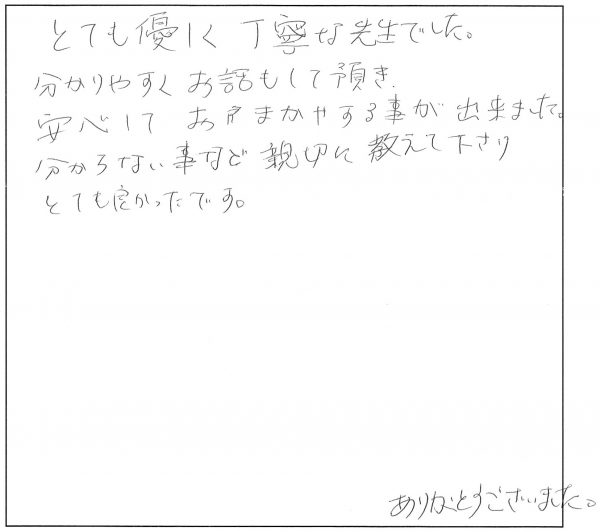 とても優しく 丁寧な先生でした。
分かりやすく お話もして預き、
安心して おまかせする事が 出来ました。
分からない事など 親切に 教えて下さり
とても良かったです。
ありがとうございました。